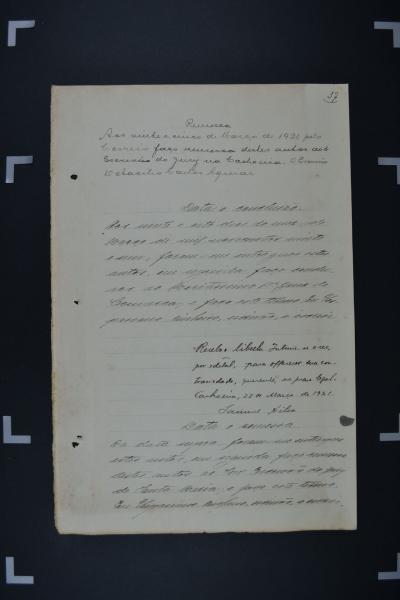 37
Remessa
Aos vinte e cinco de Março de 1921 pelo
Correio faço remessa destes autos ao
Escrivão do Jury na Cachoeira. O Escrivão
Octacilio Carlos Aguiar
Data e conclusão
Aos vinte e oito dias do mez de
Março de mil novecentos vinte
e um, foram-me entregues estes
autos, em seguida faço conclu-
sos ao Meritissimo Dr. Juiz de
Comarca, e faço este termo. Eu
escrivão, o escrevi
Recebo o libello. Intime-se o réo,
por edital, para offerecer sua con-
trariedade, querendo, no prazo legal.
Cachoeira, 28 de Março de 1921.
Silva
Data e remessa
Na data supra foram-me entregues
estes autos, em seguida faço remessa
destes autos ao Snr. Escrivão do Jury
de Santa Maria, e faço este termo.
Eu escrivão, o escrevi.